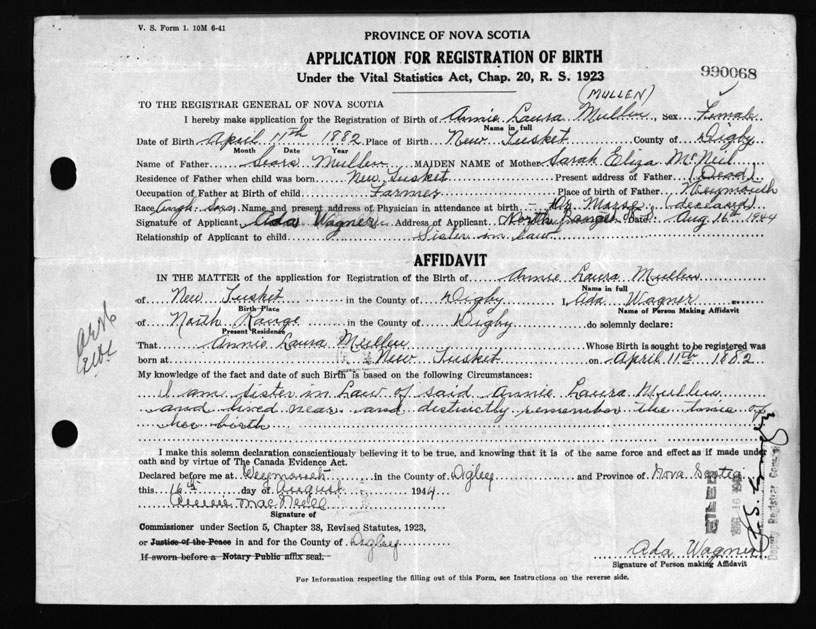 V. S. Form 1. 10M 6-41
PROVINCE OF NOVA SCOTIA
APPLICATION FOR REGISTRATION OF BIRTH
Under the Vital Statistics Act, Chap. 20, R. S. 1923
990068
(MULLEN)
TO THE REGISTRAR GENERAL OF NOVA SCOTIA
I hereby make application for the Registration of Birth of Annie Laura Mullen, sex Female
Name in full
Date of Birth April 11th 1882 Place of Birth New Tusket County of Digby
Month Date Year
Name of Father Mullen MAIDEN NAME of Mother Sarah Eliza McNeil
Residence of Father when child was born New Tusket Present address of Father (Dead)
Occupation of Father at Birth of child Farmer Place of birth of Father Weymouth
Race Name and present address of Physician in attendance at birth (deceased)
Signature of Applicant Ada Wagner Address of Applicant North Range Date Aug 16th 1944
Relationship of Applicant to child Sister in law
AFFIDAVIT
IN THE MATTER of the application for Registration of the Birth of Annie Laura Mullen
Name in full
of New Tusket in the County of Digby I, Ada Wagner
Birth-Place Name of Person Making Affidavit
of North Range in the County of Digby do solemnly declare:
Present Residence
That Annie Laura Mullen Whose Birth is sought to be registered was
born at New Tusket on April 11th 1882
My knowledge of the fact and date of such Birth is based on the following Circumstances:
I am sister in Law of said Annie Laura Mullen
and lived near and distinctly remember the time of
her birth
I make this solemn declaration conscientiously believing it to be true, and knowing that it is of the same force and effect as if made under
oath and by virtue of The Canada Evidence Act.
Declared before me at Weymouth in the County of Digby and Province of Nova Scotia
this 16th day of August 1944
Signature of
Commissioner under Section 5, Chapter 38, Revised Statutes, 1923,
or Justice of the Peace in and for the County of Digby
If sworn before a Notary Public affix seal.
Ada Wagner
Signature of Person making Affidavit
FILED
Deputy Registrar General
For Information respecting the filling out of this Form, see Instructions on the reverse side.